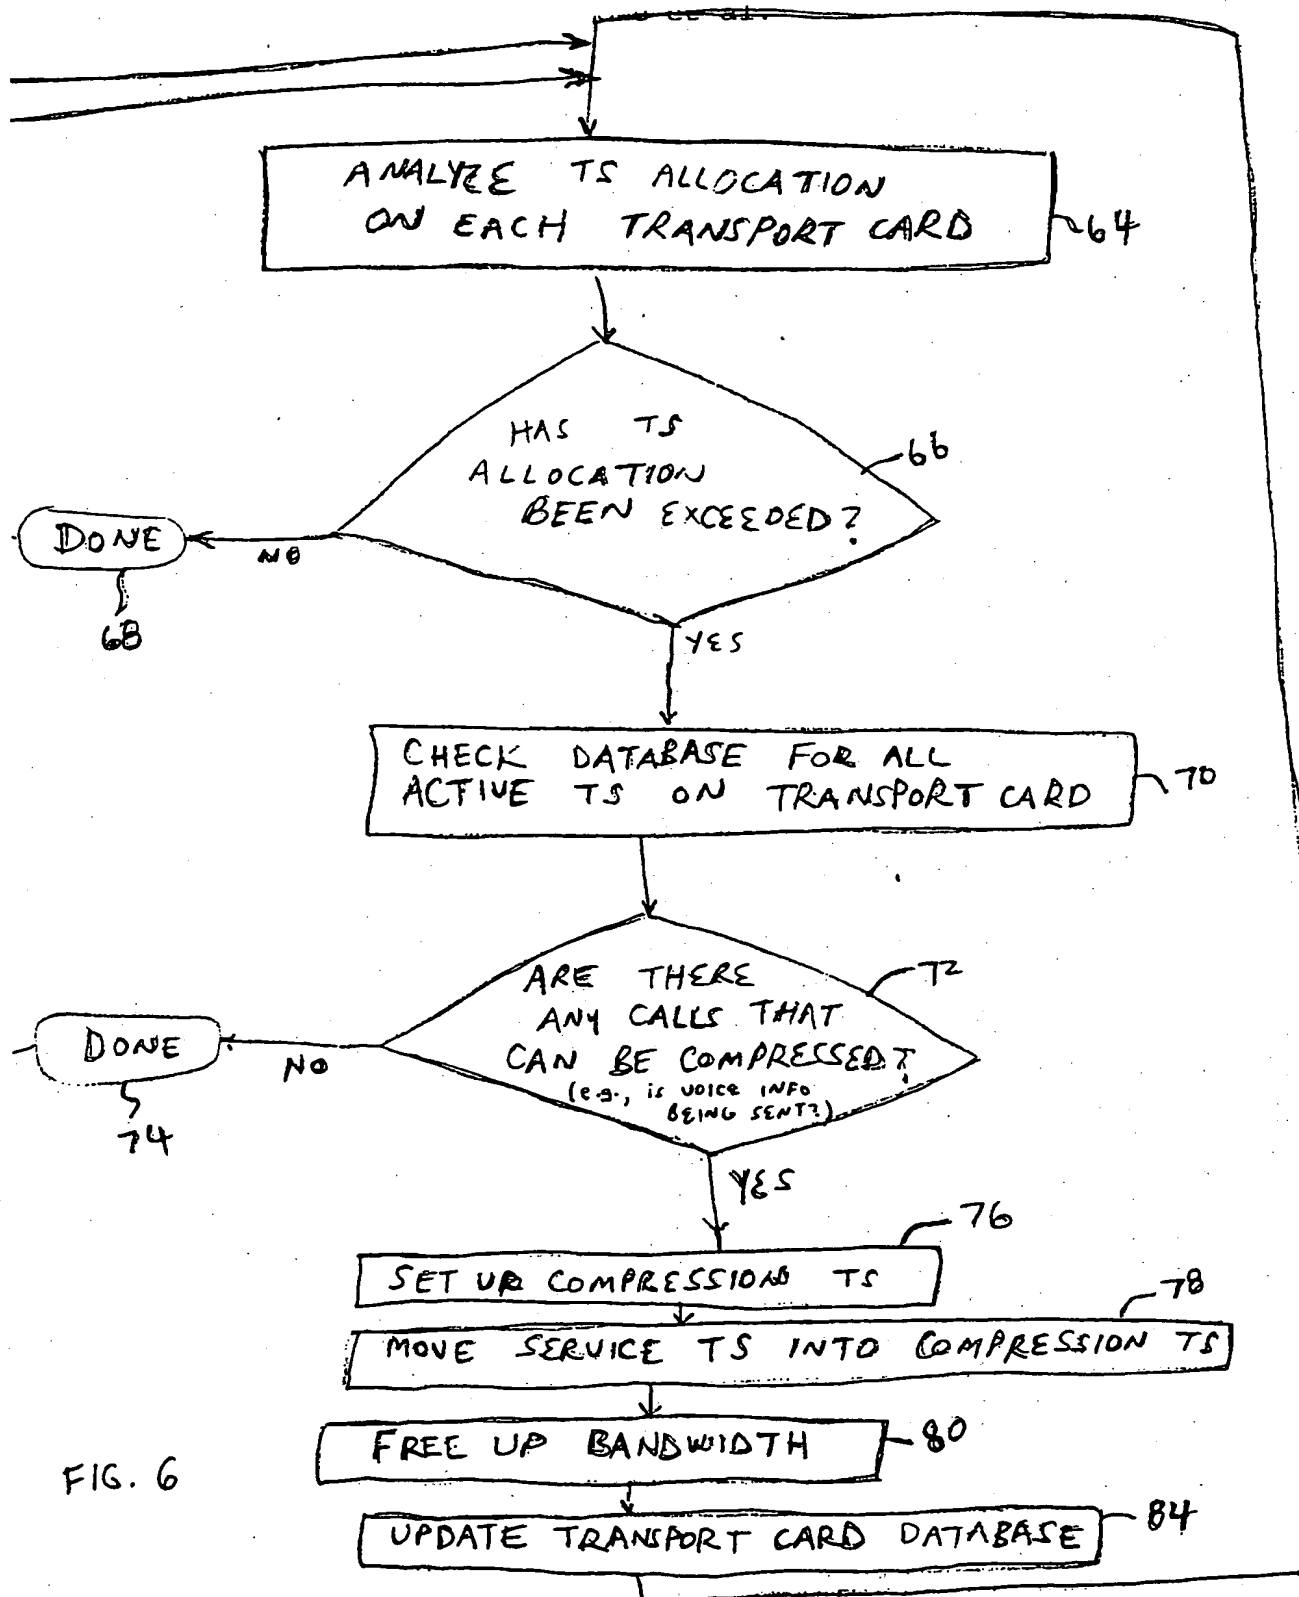 et al.
ANALYZE TS ALLOCATION
ON EACH TRANSPORT CARD
64
HAS TS
ALLOCATION
BEEN EXCEEDED?
66
DONE
NO
68
YES
CHECK DATABASE FOR ALL
ACTIVE TS ON TRANSPORT CARD
70
ARE THERE
ANY CALLS THAT
CAN BE COMPRESSED?
(e.g., is VOICE INFO
BEING SENT?)
72
DONE
NO
74
YES
76
SET UP COMPRESSION TS
78
MOVE SERVICE TS INTO COMPRESSION TS
FREE UP BANDWIDTH
80
FIG. 6
UPDATE TRANSPORT CARD DATABASE
84